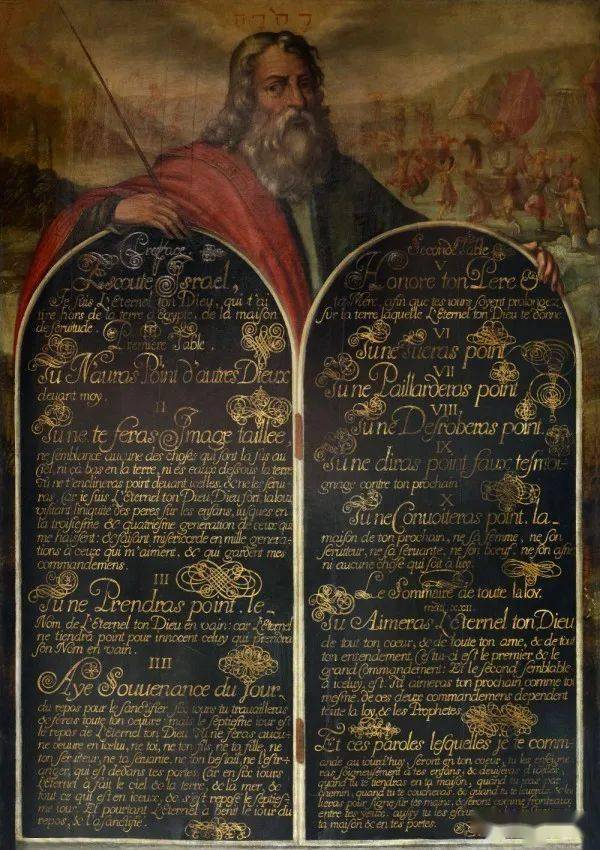 Preface
Escoute Israel,
Je suis L'Eternel ton Dieu, qui t'ai
tire hors de la terre d'egypte, de la maison
de seruitude.
Premiere Table.
I
Tu N'auras Point d'autres Dieux
deuant moy.
II
Tu ne te feras Image taillee,
ne semblance aucune des choses qui sont la sus au
Ciel, ni ça bas en la terre, ni es eaux dessous la terre
Tu ne t'enclineras point deuant icelles, & ne les serui-
ras. Car ie suis L'Eternel ton Dieu, Dieu fort, ialoux
visitant l'iniquite des peres sur les enfans, iusques en
la troisiesme & quatriesme generation de ceux qui
me haissent: & faisant misericorde en mille genera-
tions a ceux qui m'aiment, & qui gardent mes
commandemens.
III
Tu ne Prendras point le
Nom de L'Eternel ton Dieu en vain: car L'Eternel
ne tiendra point pour innocent celuy qui prendra
son Nom en vain.
IIII
Aye Souuenance du Jour
du repos pour le sanctifier. six iours tu trauailleras
& feras toute ton oeuure. mais le septiesme iour est
le repos de L'Eternel ton Dieu. Tu ne feras aucu-
ne oeuure en icelui, ne toi, ne ton fils, ne ta fille, ne
ton seruiteur, ne ta seruante, ne ton bestail, ne l'estr-
anger, qui est dedans tes portes. Car en six iours
L'Eternel a fait le ciel & la terre, & la mer, &
tout ce qui est en iceux, & s'est reposé le septies-
me iour. Et pourtant L'Eternel a benit le iour du
repos, & l'a sanctifie.
Seconde Table
V
Honore ton Pere &
ta Mere, afin que tes iours soyent prolongez
sur la terre laquelle L'Eternel ton Dieu te donne.
VI
Tu ne Tueras point
VII
Tu ne Paillarderas point
VIII
Tu ne Desroberas point.
IX
Tu ne diras point faux tesmoi-
gnage contre ton prochain
X
Tu ne Conuoiteras point la
maison de ton prochain, ne sa femme, ne son
seruiteur, ne sa seruante, ne son boeuf, ne son asne
ni aucune chose qui soit a luy.
Le Sommaire de toute la loy.
Tu Aimeras L'Eternel ton Dieu
de tout ton coeur, & de toute ton ame, & de tout
ton entendement. Cestui-ci est le premier & le
grand Commandement. Et le second semblable
a iceluy, est. Tu aimeras ton prochain comme toi
mesme. de ces deux commandemens dependent
toute la loy & les Prophetes.
Et ces paroles lesquelles je te comm-
ande au iourd'huy, seront en ton coeur, tu les enseigne
ras soigneusement a tes enfans, & deuiseras d'icelles
quand tu te tiendras en ta maison, quand tu iras par
chemin, quand tu te coucheras, & quand tu te leueras, & les
lieras pour signe sur tes mains, & seront comme fronteaux
entre tes yeux. aussi tu les escriras
ta maison & en tes portes.